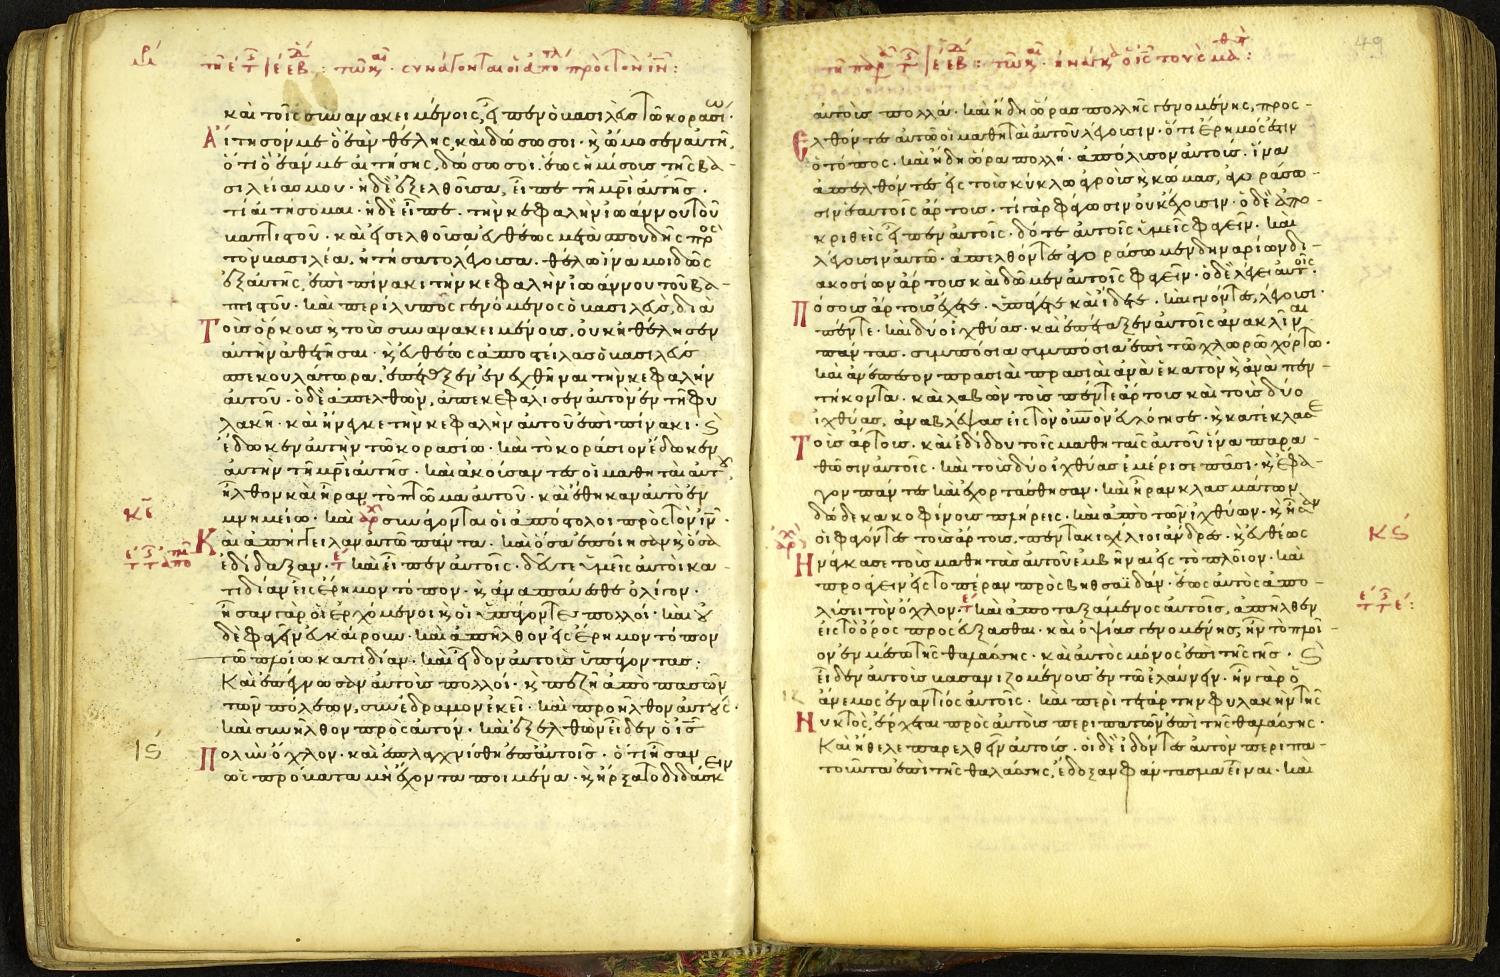 καὶ τοῖς συνανακειμένοις, εἶπεν ὁ βασιλεὺς τῶ κορασίω·
αἴτησόν με ὃ ἐὰν θέλης, καὶ δώσω σοι· κ̣ ὤμοσεν αὐτῆ,
ὅτι ὃ ἐάν με αἰτήσης, δώσω σοι. ἕως ἡμίσοις τῆς βα-
σιλείας μου· ἡ δὲ ἐξελθοῦσα, εἶπε τῆ μρὶ αὐτῆς·
τί αἰτήσομαι· ἡ δὲ εἶπε. τὴν κεφαλὴν ἰωάννου τοῦ
βαπτιστοῦ· καὶ εἰσελθοῦσα εὐθέως μετὰ σπουδῆς πρὸς
τὸν βασιλέα, ἠτήσατο λέγουσα. θέλω ἵνα μοι δῶς
ἐξαυτῆς, ἐπὶ πίνακι τὴν κεφαλὴν ἰωάννου τοῦ βα-
πτιστοῦ· καὶ περίλυπος γενόμενος ὁ βασιλεὺς, διὰ
Τοὺς ὅρκους κ̣ τοὺς συνανακειμένους, οὐκ ἠθέλησεν
αὐτὴν ἀθετῆσαι· κ̣ εὐθέως ἀποστείλας ὁ βασιλεὺς
σπεκουλάτωρα, ἐπέταξεν ἐνεχθῆναι τὴν κεφαλὴν
αὐτοῦ· ὁ δὲ ἀπελθὼν, ἀπεκεφάλισεν αὐτὸν ἐν τῆ φυ
λακῆ· καὶ ἤνεγκε τὴν κεφαλὴν αὐτοῦ ἐπὶ πίνακι· κ̣
ἔδωκεν αὐτὴν τῶ κορασίω· καὶ τὸ κοράσιον ἔδωκεν
αὐτὴν τῆ μρὶ αὐτῆς· καὶ ἀκούσαντες οἱ μαθηταὶ αὐτοῦ
ἦλθον καὶ ἦραν τὸ πτῶμα αὐτοῦ· καὶ ἔθηκαν αὐτὸ ἐν
μνημείω· καὶ συνάγονται οἱ ἀπόστολοι πρὸς τὸν ἰν̅·
Καὶ ἀπήγγειλαν αὐτῶ πάντα· καὶ ὅσα ἐποίησαν κ̣ ὅσα
ἐδίδαξαν· καὶ εἶπεν αὐτοῖς· δεῦτε ὑμεῖς αὐτοὶ κα-
τιδίαν εἰς ἔρημον τόπον· κ̣ ἀναπαύεσθε ὀλίγον·
ἦσαν γὰρ οἱ ἐρχόμενοι κ̣ οἱ ὑπάγοντες πολλοί· καὶ οὐ
δὲ φαγεῖν εὐκαίρουν· καὶ ἀπῆλθον εἰς ἔρημον τόπον
τῶ πλοίω κατιδίαν· καὶ εἶδον αὐτοὺς ὑπάγοντας:
Καὶ ἐπέγνωσαν αὐτοὺς πολλοί· κ̣ πεζῆ ἀπὸ πασῶν
τῶν πόλεων, συνέδραμον ἐκεῖ· καὶ προῆλθον αὐτούς·
καὶ συνῆλθον πρὸς αὐτόν· καὶ ἐξελθὼν εἶδεν ὁ ις̅
Πολὺν ὄχλον· καὶ ἐσπλαχνίσθη ἐπ' αὐτοῖς· ὅτι ἦσαν
ὡς πρόβατα μὴ ἔχοντα ποιμένα· κ̣ ἤρξατο διδάσκειν
κε̅
ις
49
αὐτοὺς πολλά· καὶ ἤδη ὥρας πολλῆς γενομένης, προσ-
ελθόντες αὐτῶ οἱ μαθηταὶ αὐτοῦ λέγουσιν· ὅτι ἔρημός ἐστιν
ὁ τόπος· καὶ ἤδη ὥρα πολλή· ἀπόλυσον αὐτούς· ἵνα
ἀπελθόντες εἰς τοὺς κύκλω ἀγροὺς κ̣ κώμας, ἀγοράσω-
σιν ἑαυτοῖς ἄρτους· τί γὰρ φάγωσιν οὐκ ἔχουσιν· ὁ δὲ ἀπο-
κριθεὶς εἶπεν αὐτοῖς· δότε αὐτοῖς ὑμεῖς φαγεῖν· καὶ
λέγουσιν αὐτῶ· ἀπελθόντες ἀγοράσωμεν δηναρίων δι-
ακοσίων ἄρτους καὶ δῶμεν αὐτοῖς φαγεῖν· ὁ δὲ λέγει αὐτοῖς·
Πόσους ἄρτους ἔχετε· ὑπάγετε καὶ ἴδετε· καὶ γνόντες, λέγουσι·
πέντε· καὶ δύο ἰχθύας· καὶ ἐπέταξεν αὐτοῖς ἀνακλῖναι
πάντας· συμπόσια συμπόσια ἐπὶ τῶ χλωρῶ χόρτω·
καὶ ἀνέπεσον πρασιαὶ πρασιαὶ ἀνὰ ἑκατὸν κ̣ ἀνὰ πεν-
τήκοντα· καὶ λαβὼν τοὺς πέντε ἄρτους καὶ τοὺς δύο
ἰχθύας, ἀναβλέψας εἰς τὸν οὐνὸν εὐλόγησε· κ̣ κατέκλασε
Τοὺς ἄρτους· καὶ ἐδίδου τοῖς μαθηταῖς αὐτοῦ ἵνα παρα-
θῶσιν αὐτοῖς· καὶ τοὺς δύο ἰχθύας ἐμέρισε πᾶσι· κ̣ ἔφα-
γον πάντες καὶ ἐχορτάσθησαν· καὶ ἦραν κλασμάτων
δώδεκα κοφίνους πλήρεις· καὶ ἀπὸ τῶν ἰχθύων· κ̣ ἦσαν
οἱ φαγόντες τοὺς ἄρτους, πεντακιχίλιοι ἄνδρες· κ̣ εὐθέως
Ἠνάγκασε τοὺς μαθητὰς αὐτοῦ ἐμβῆναι εἰς τὸ πλοῖον· καὶ
προάγειν εἰς τὸ πέραν πρὸς βηθσαϊδάν· ἕως αὐτὸς ἀπο-
λύσει τὸν ὄχλον· καὶ ἀποταξάμενος αὐτοῖς, ἀπῆλθεν
εἰς τὸ ὄρος προσεύξασθαι· καὶ ὀψίας γενομένης, ἦν τὸ πλοῖ-
ον ἐν μέσω τῆς θαλάσσης· καὶ αὐτὸς μόνος ἐπὶ τῆς γῆς· κ̣
εἶδεν αὐτοὺς βασανιζομένους ἐν τῶ ἐλαύνειν· ἦν γὰρ ὁ
ἄνεμος ἐναντίος αὐτοῖς· καὶ περὶ τετάρτην φυλακὴν τῆς
Νυκτὸς, ἔρχεται πρὸς αὐτοὺς περιπατῶν ἐπὶ τῆς θαλάσσης·
Καὶ ἤθελε παρελθεῖν αὐτούς· οἱ δὲ ἰδόντες αὐτὸν περιπα-
τοῦντα ἐπὶ τῆς θαλάσσης, ἔδοξαν φάντασμα εἶναι· καὶ
κς